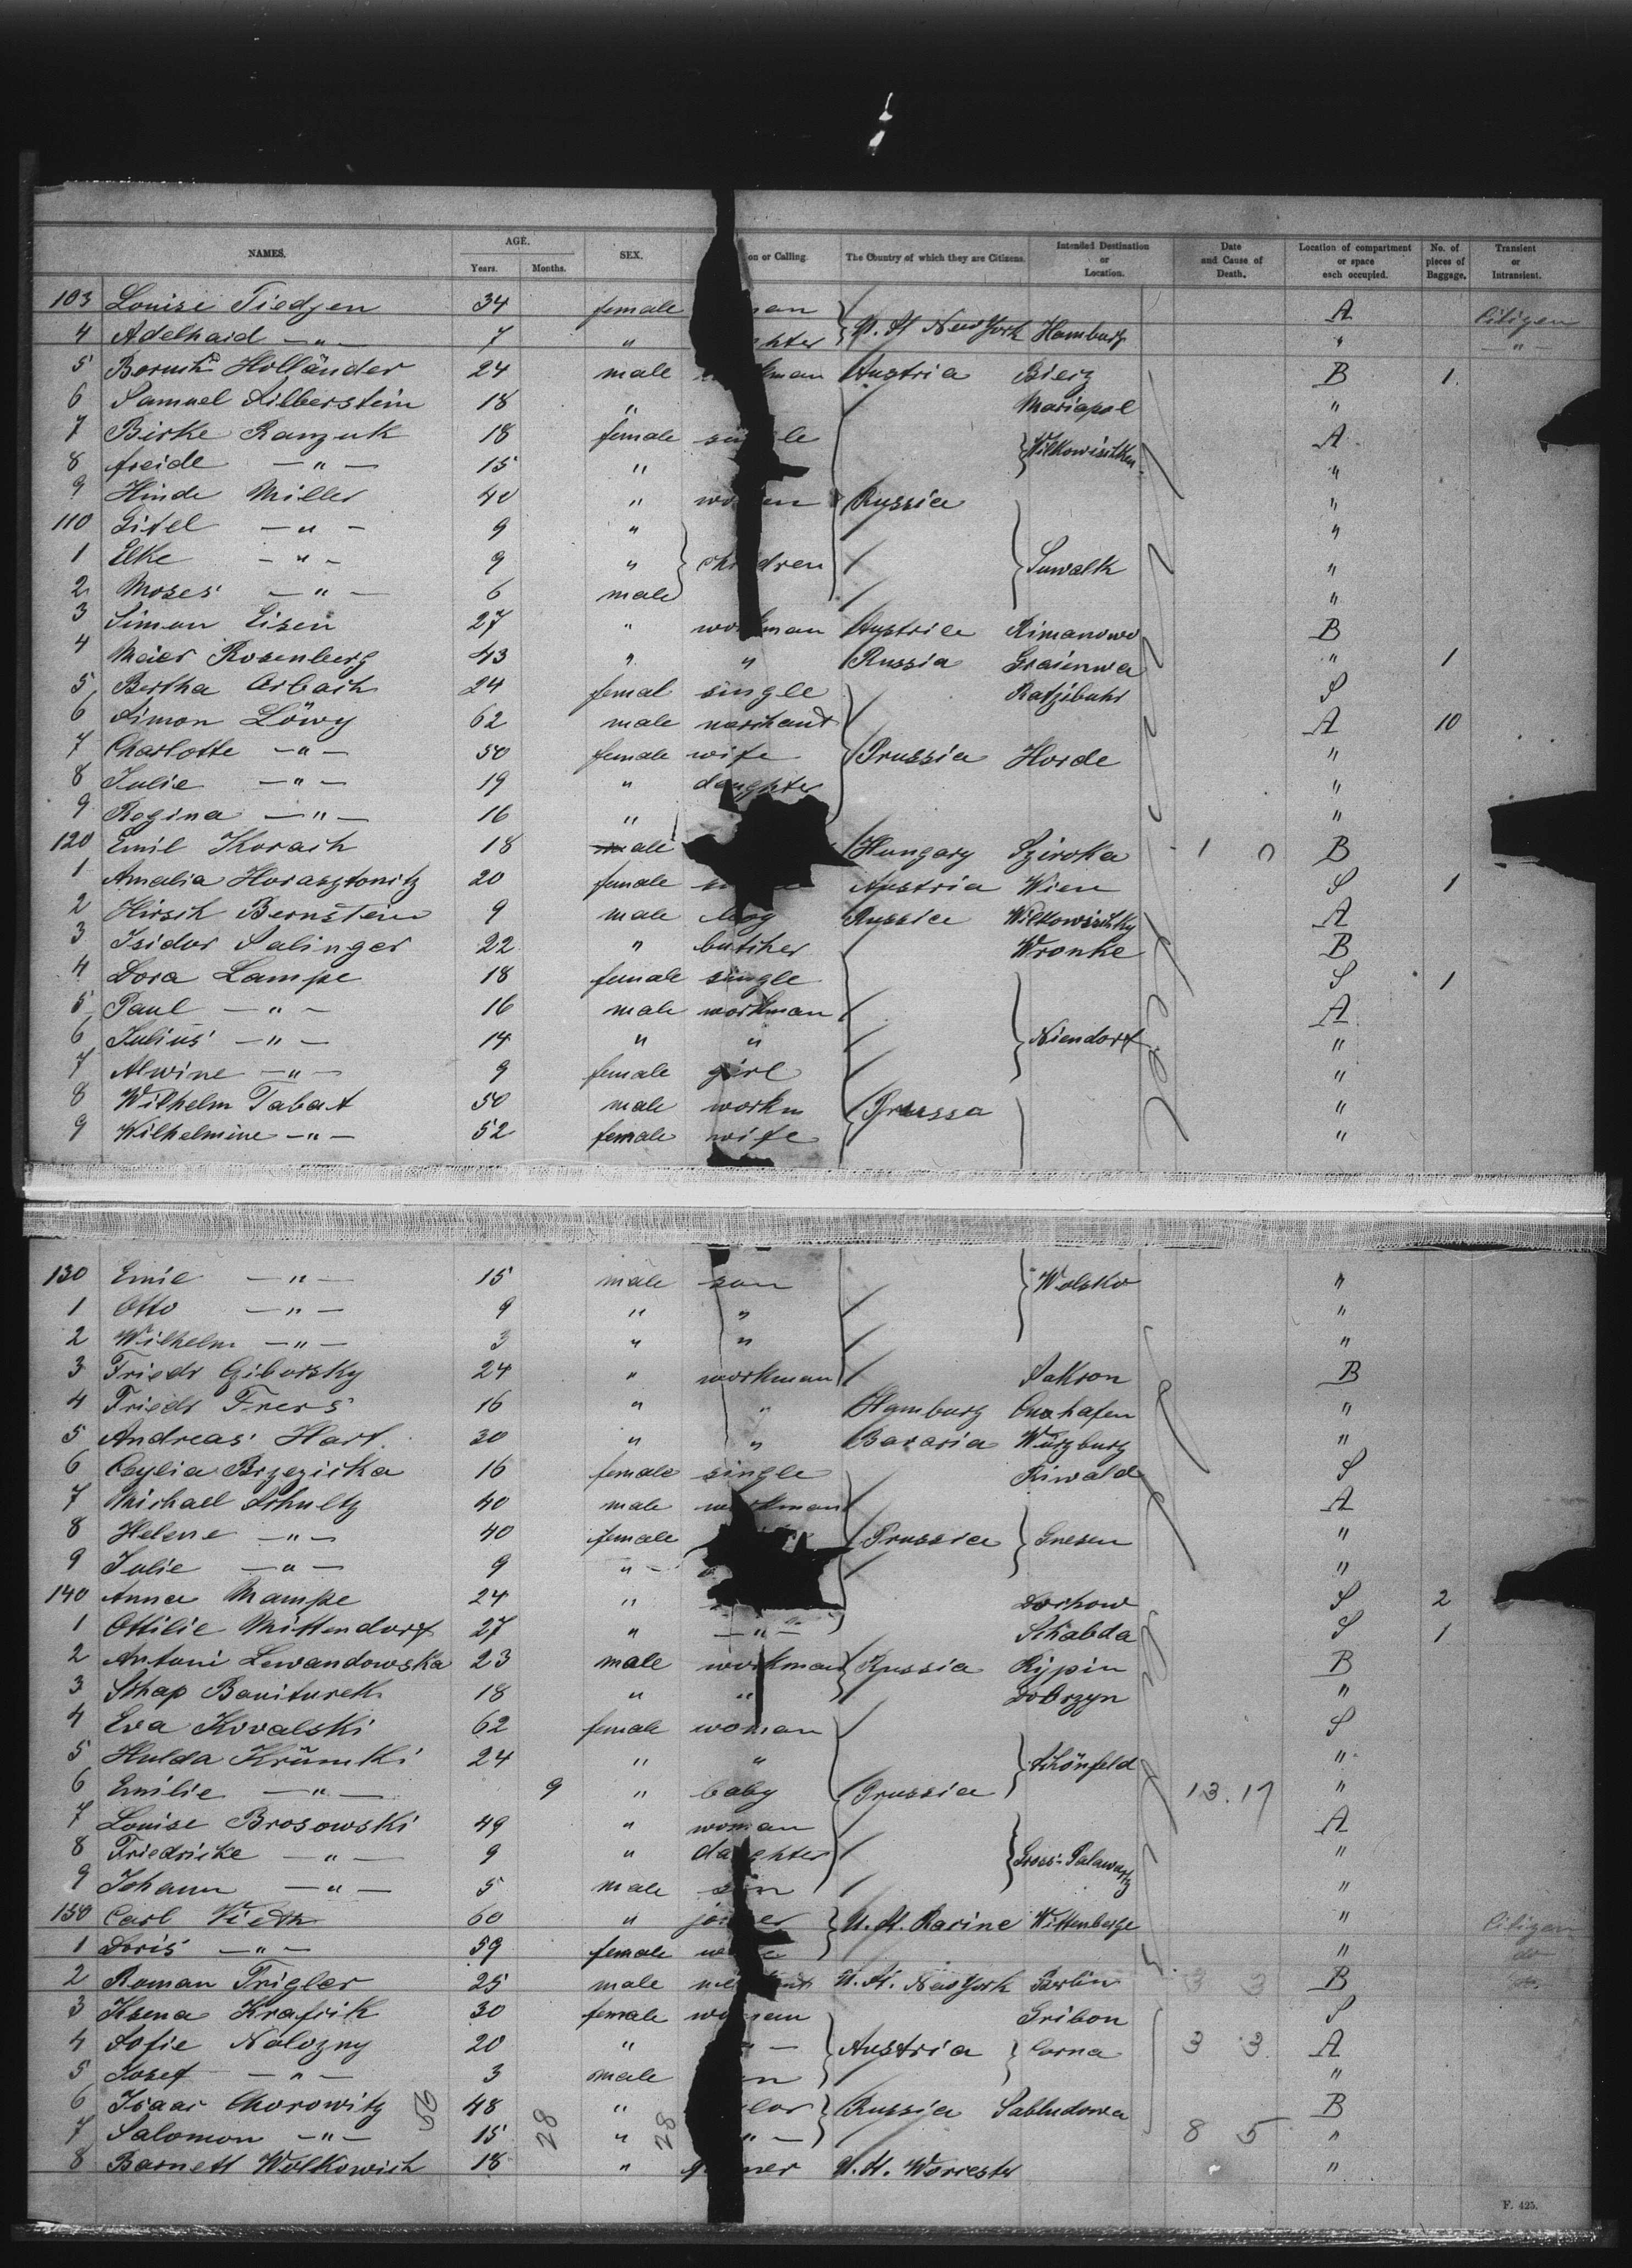 NAMES. AGE. Years. Months. SEX. on or Calling. The Country of which they are Citizens. Intended Destination or Location. Date and Cause of Death. Location of compartment or space each occupied. No. of pieces of Baggage. Transient or Intransient.
103 Louise Tiedjen 34 female an A Citizen
4 Adelhaid —"— 7 " hter U. St. New York Hamburg " —"—
5 Holländer 24 male man Austria Bierz B 1
6 Samuel Silberstein 18 " Mariapol "
7 Birke Ranzuk 18 female si le A
8 freide —"— 15 " Wilkowischken "
9 Hinde Miller 40 " wo en Russia "
110 Gitel —"— 9 " "
1 Elke —"— 9 " chi dren Suwalk "
2 Moses —"— 6 male "
3 Simon Eisen 27 " wo kman Austria Rimanowo B
4 Meier Rosenberg 43 " " Russia " 1
5 Bertha Arbach 24 femal single Ratzibuhr S
6 Simon Löwy 62 male A 10
7 Charlotte —"— 50 female wife Prussia Horde "
8 Julie —"— 19 " daughter "
9 Regina —"— 16 " "
120 Emil Korach 18 male Hungary Sziroka 1 B
1 Amalia 20 female Austria Wien S 1
2 Hirsch Bernstein 9 male boy Russia Wilkowischky A
3 Isidor Salinger 22 " butcher Wronke B
4 Dora Lampe 18 female single S 1
5 Paul —"— 16 male workman A
6 Julius —"— 14 " " Niendorf "
7 Alwine —"— 9 female girl "
8 Wilhelm Tabat 50 male workm Prussa "
9 Wilhelmine —"— 52 female wife "
130 Emil —"— 15 male son Wolsko "
1 Otto —"— 9 " " "
2 Wilhelm —"— 3 " " "
3 Friedr Giborsky 24 " workman Sakron B
4 Friedr Frers 16 " " Hamburg Cuxhafen "
5 Andreas Hart 30 " " Bavaria Würzburg "
6 Brzezicka 16 female single Riwald S
7 Michael Schultz 40 male workman A
8 Helene —"— 40 female Prussia Gnesen "
9 Julie —"— 9 " "
140 Anna Mampe 24 " S 2
1 Ottilie Mittendorf 27 " —"— Schabda S 1
2 Antoni Lewandowska 23 male workman Russia Rypin B
3 18 " " Dobrzyn "
4 Eva Kovalski 62 female woman S
5 Hulda 24 " " Schönfeld "
6 Emilie —"— 9 " baby Prussia 13. 17 "
7 Louise Brosowski 49 " woman A
8 Friedricke —"— 9 " da ghter Gross- "
9 Johann —"— 5 male son "
150 Carl Vieth 60 " jo er U. St. Racine Wittenberge " Citizen
1 Doris —"— 59 female " do
2 Roman Trigler 25 male U. St. New York Berlin 3 3 B do.
3 30 female wo an Gribon S
4 Sofie Nalozny 20 " — Austria Corna 3 3 A
5 Josef —"— 3 male n "
6 Isaac Chorowitz 48 " lor Russia Sabludowa B
7 Salomon —"— 15 " "— 8 5 "
8 Barnett Wolkowich 18 " ner U. St. Worcester "
56 28 28
F. 425.